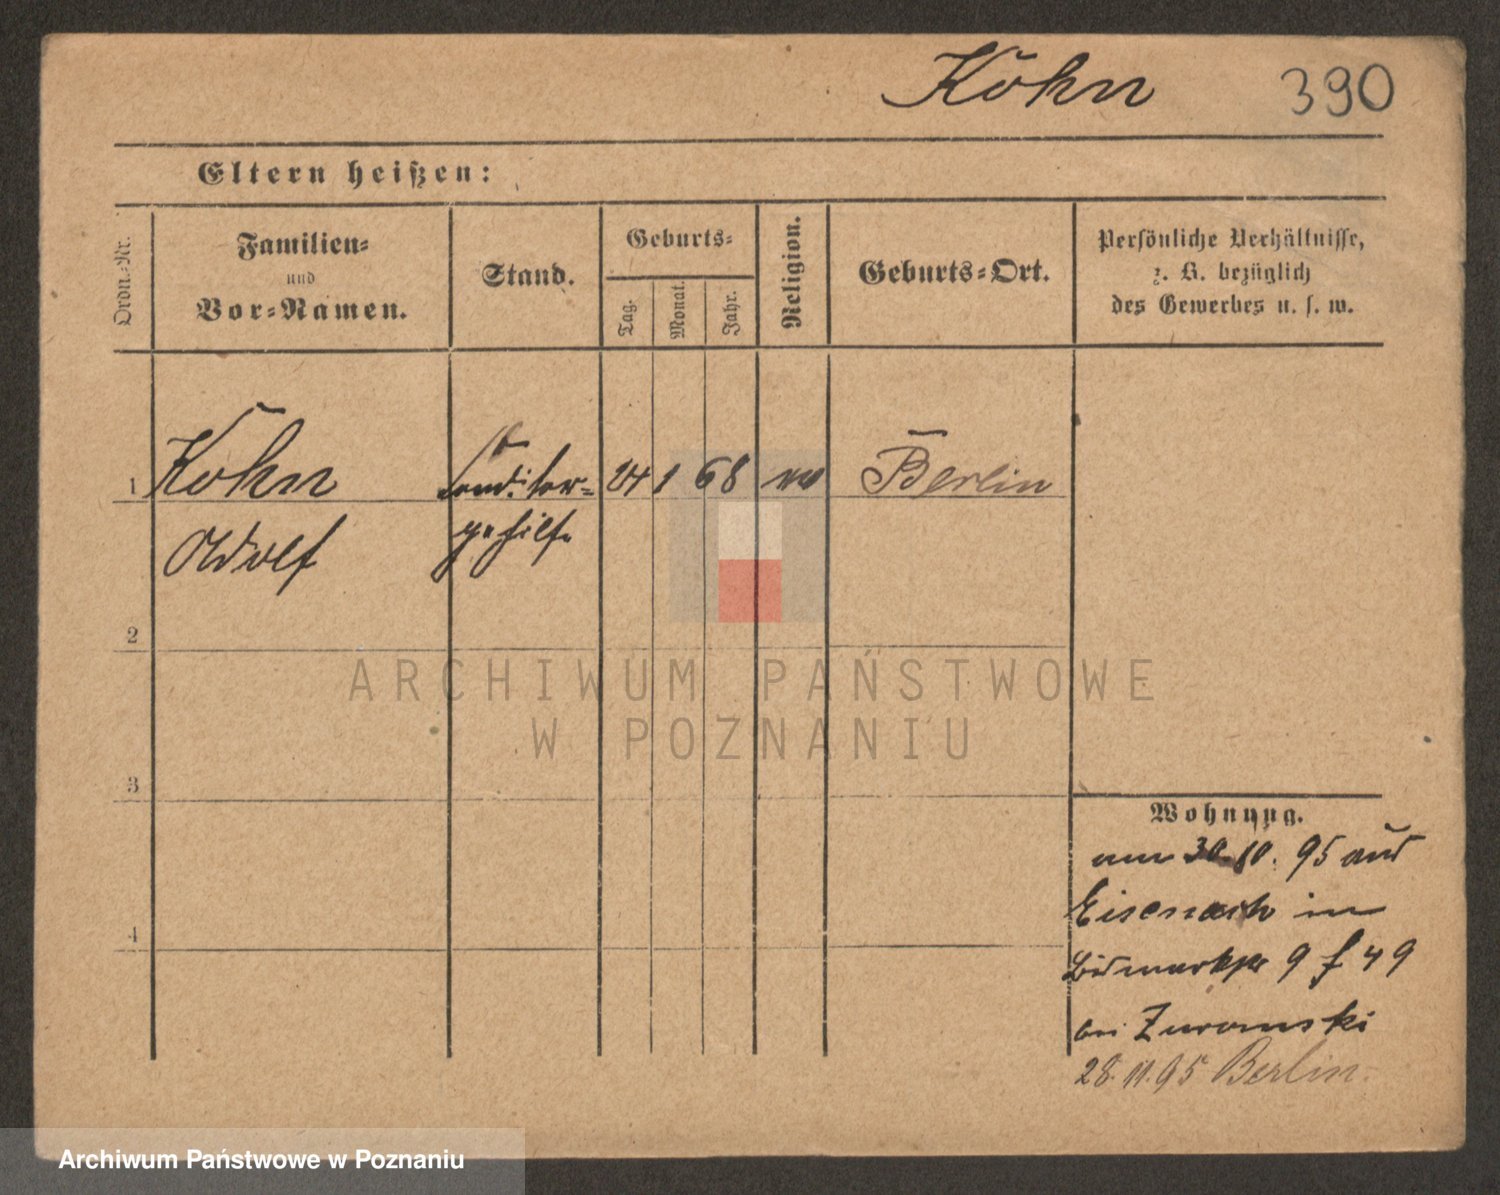 Kohn 390
Eltern heißen:
Ordn.-Nr.
Familien-
und
Vor-Namen.
Stand.
Geburts-
Tag.
Monat.
Jahr.
Religion.
Geburts-Ort.
Persönliche Verhältnisse,
z. B. bezüglich
des Gewerbes u. s. w.
1 Kohn Conditor- 24 1 68 Berlin
Adolf gehilfe
2
3
4
Wohnung.
am 30.10.95 aus
Eisenach in
Bismarkstr 9 f 49
bei Zuromski
28.11.95 Berlin.
ARCHIWUM PAŃSTWOWE
W POZNANIU
Archiwum Państwowe w Poznaniu